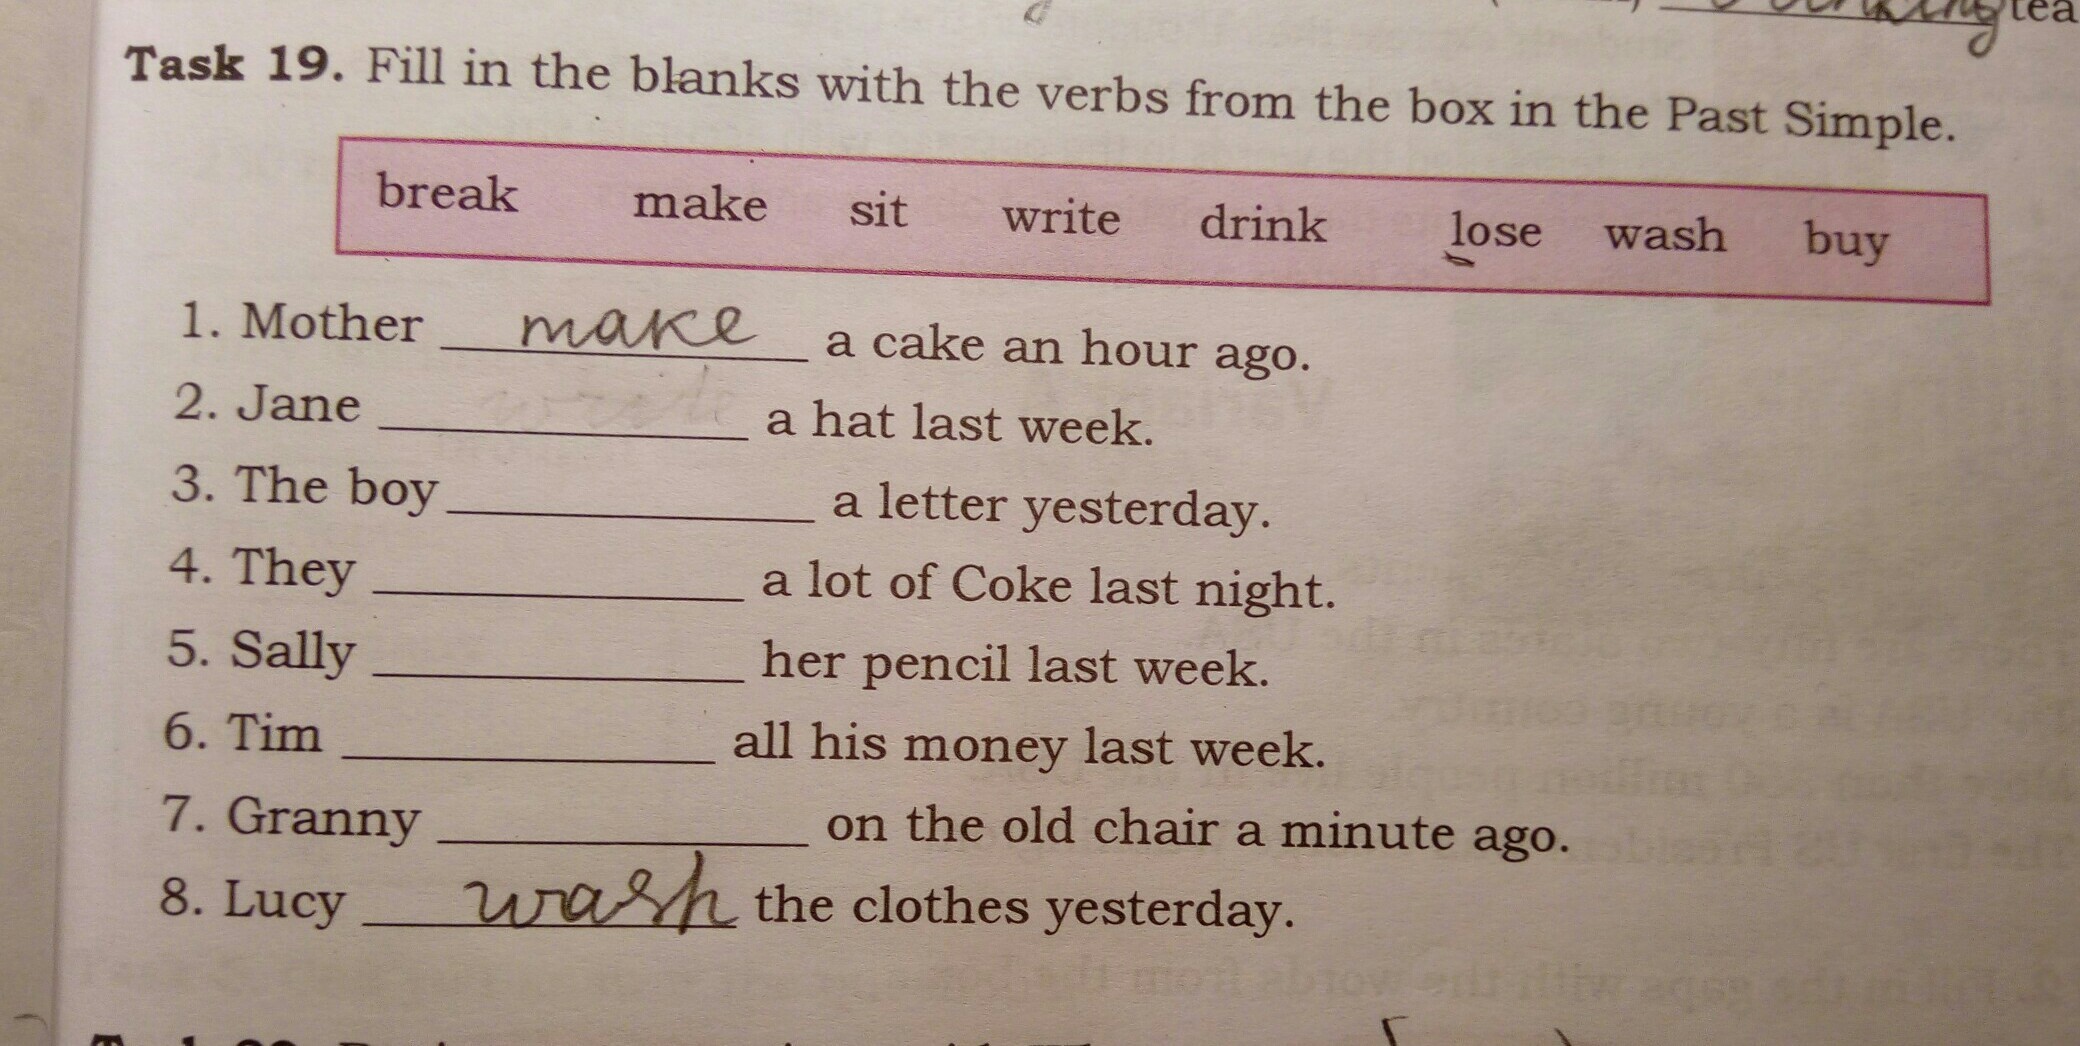 tea
Task 19. Fill in the blanks with the verbs from the box in the Past Simple.
break make sit write drink lose wash buy
1. Mother make a cake an hour ago.
2. Jane ____________ a hat last week.
3. The boy ____________ a letter yesterday.
4. They ____________ a lot of Coke last night.
5. Sally ____________ her pencil last week.
6. Tim ____________ all his money last week.
7. Granny ____________ on the old chair a minute ago.
8. Lucy wash the clothes yesterday.